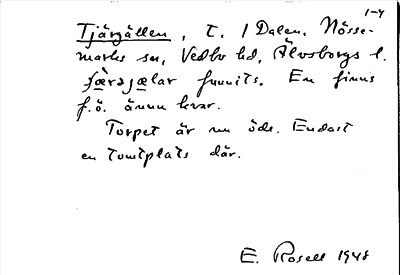 1-4
Tjärgällen, t. / Dalen, Nösse-
marks sn, Vedbo hd, Älvsborgs l.
funnits. En finns
f.ö. ännu kvar.
Torpet är nu öde. Endast
en tomtplats där.
E. Rosell 1948